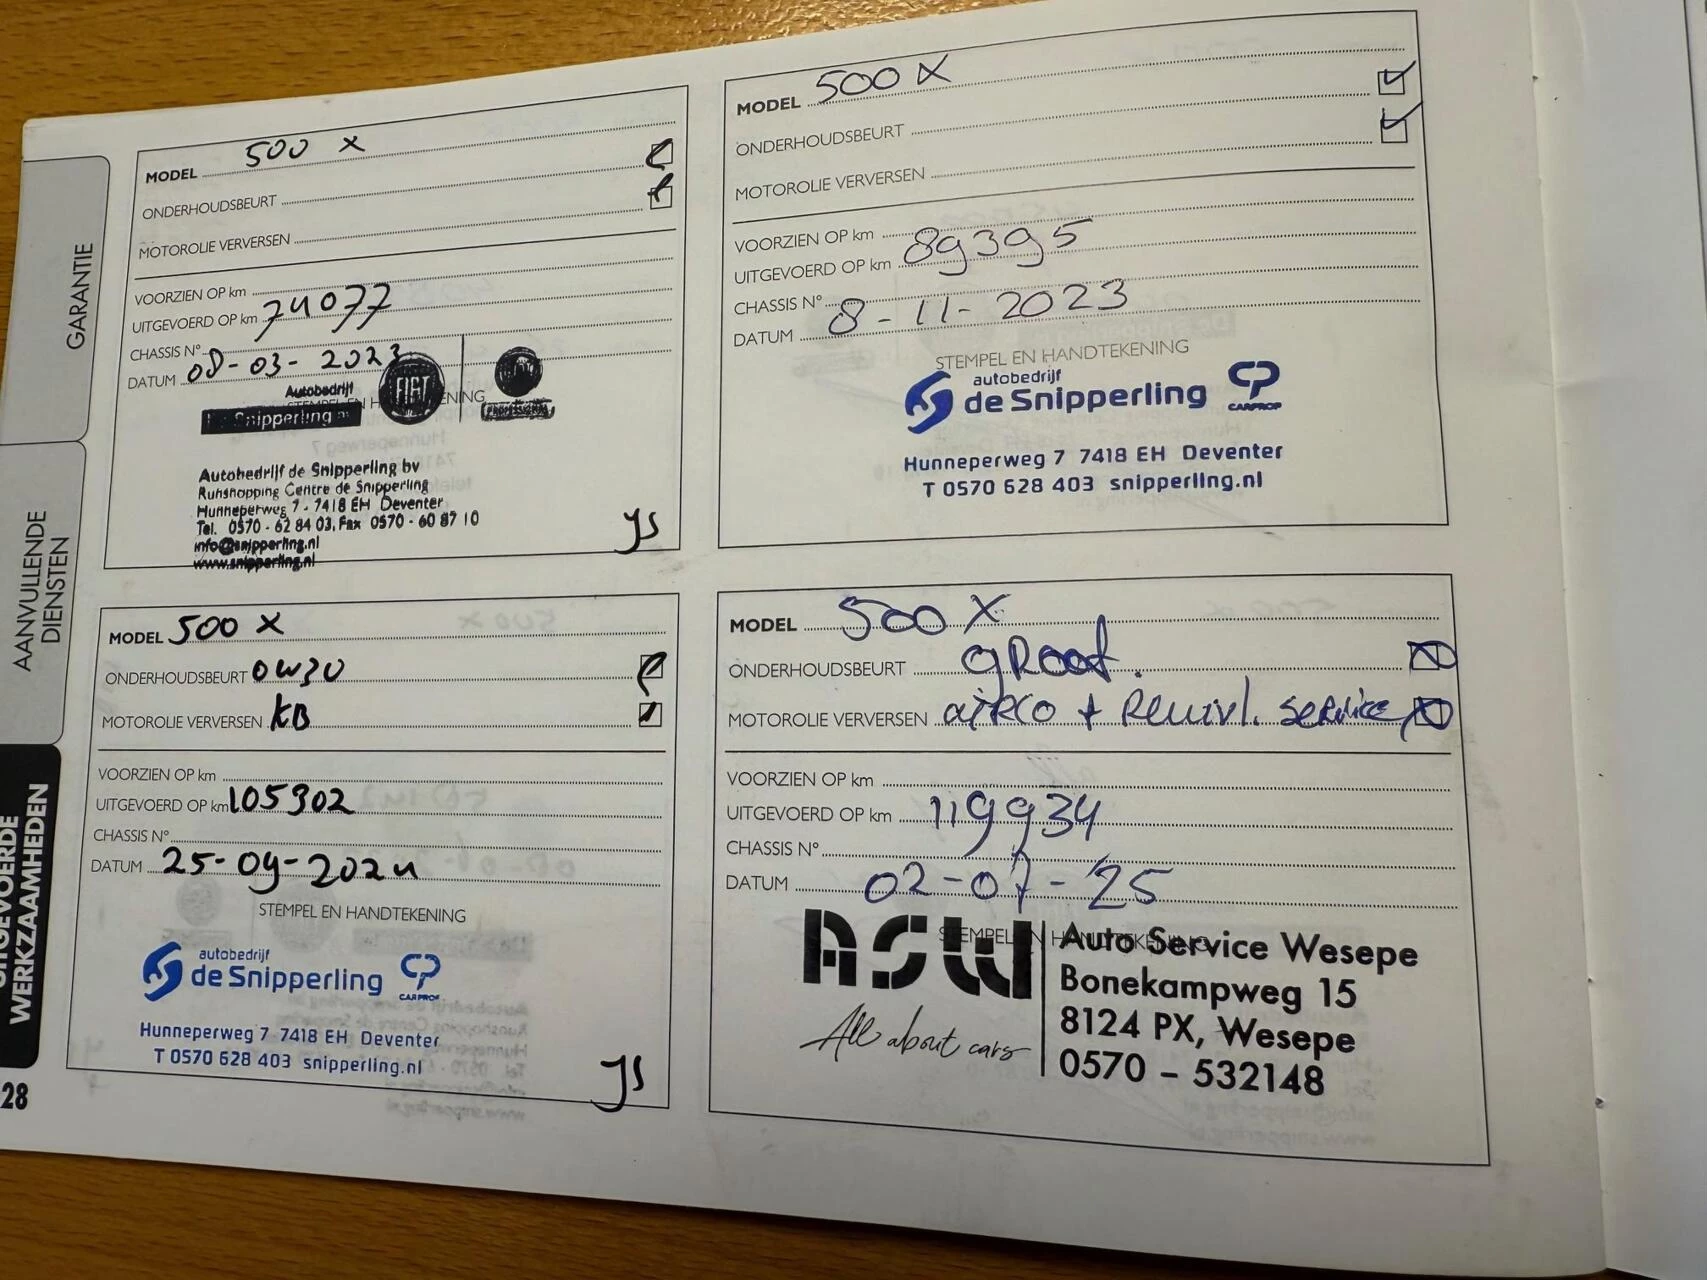 GARANTIE
AANVULLENDE
DIENSTEN
UITGEVOERDE
WERKZAAMHEDEN
28
MODEL 500 X
ONDERHOUDSBEURT
MOTOROLIE VERVERSEN
VOORZIEN OP km
UITGEVOERD OP km 74077
CHASSIS N°
DATUM 08-03-2023
STEMPEL EN HANDTEKENING
Autobedrijf
de Snipperling bv
FIAT
PROFESSIONAL
Autobedrijf de Snipperling bv
Runshopping Centre de Snipperling
Hunneperweg 7 - 7418 EH Deventer
Tel. 0570 - 62 84 03, Fax 0570 - 60 87 10
info@snipperling.nl
www.snipperling.nl
JS
MODEL 500 X
ONDERHOUDSBEURT
MOTOROLIE VERVERSEN
VOORZIEN OP km
UITGEVOERD OP km 89395
CHASSIS N°
DATUM 8-11-2023
STEMPEL EN HANDTEKENING
autobedrijf
de Snipperling
CP
CARPROF
Hunneperweg 7 7418 EH Deventer
T 0570 628 403 snipperling.nl
MODEL 500 X
ONDERHOUDSBEURT 0W30
MOTOROLIE VERVERSEN KB
VOORZIEN OP km
UITGEVOERD OP km 105302
CHASSIS N°
DATUM 25-09-2024
STEMPEL EN HANDTEKENING
autobedrijf
de Snipperling
CP
CARPROF
Hunneperweg 7 7418 EH Deventer
T 0570 628 403 snipperling.nl
JS
MODEL 500 X
ONDERHOUDSBEURT groot.
MOTOROLIE VERVERSEN airco + Remvl. service
VOORZIEN OP km
UITGEVOERD OP km 119934
CHASSIS N°
DATUM 02-07-25
STEMPEL EN HANDTEKENING
ASW
All about cars
Auto Service Wesepe
Bonekampweg 15
8124 PX, Wesepe
0570 - 532148